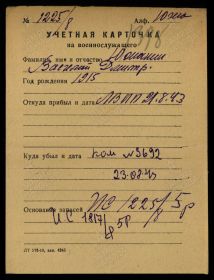 № 1225/8 Алф.
УЧЕТНАЯ КАРТОЧКА
на военнослужащего
Фамилия, имя и отчество
Василий Дмитр.
Год рождения 1915
Откуда прибыл и дата ЛВПП 21.8.43
Куда убыл и дата ком №3692
23.08.43
Основание записей ИС 1225/5р
ИС 1817/5р